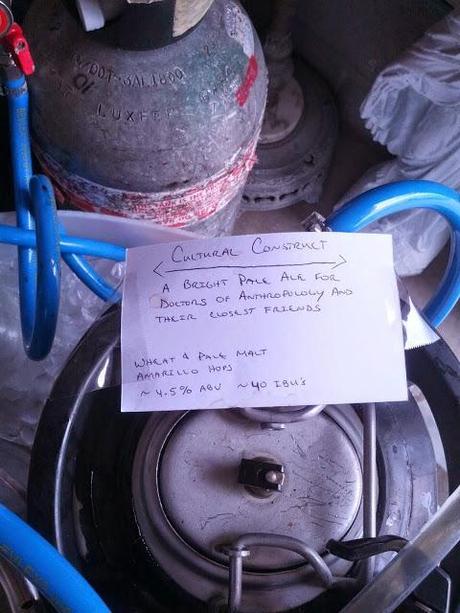 M/DOT-3AL1800
LUXFER
CULTURAL CONSTRUCT
A BRIGHT PALE ALE FOR
DOCTORS OF ANTHROPOLOGY AND
THEIR CLOSEST FRIENDS
WHEAT & PALE MALT
AMARILLO HOPS
~ 4.5% ABV ~ 40 IBU'S